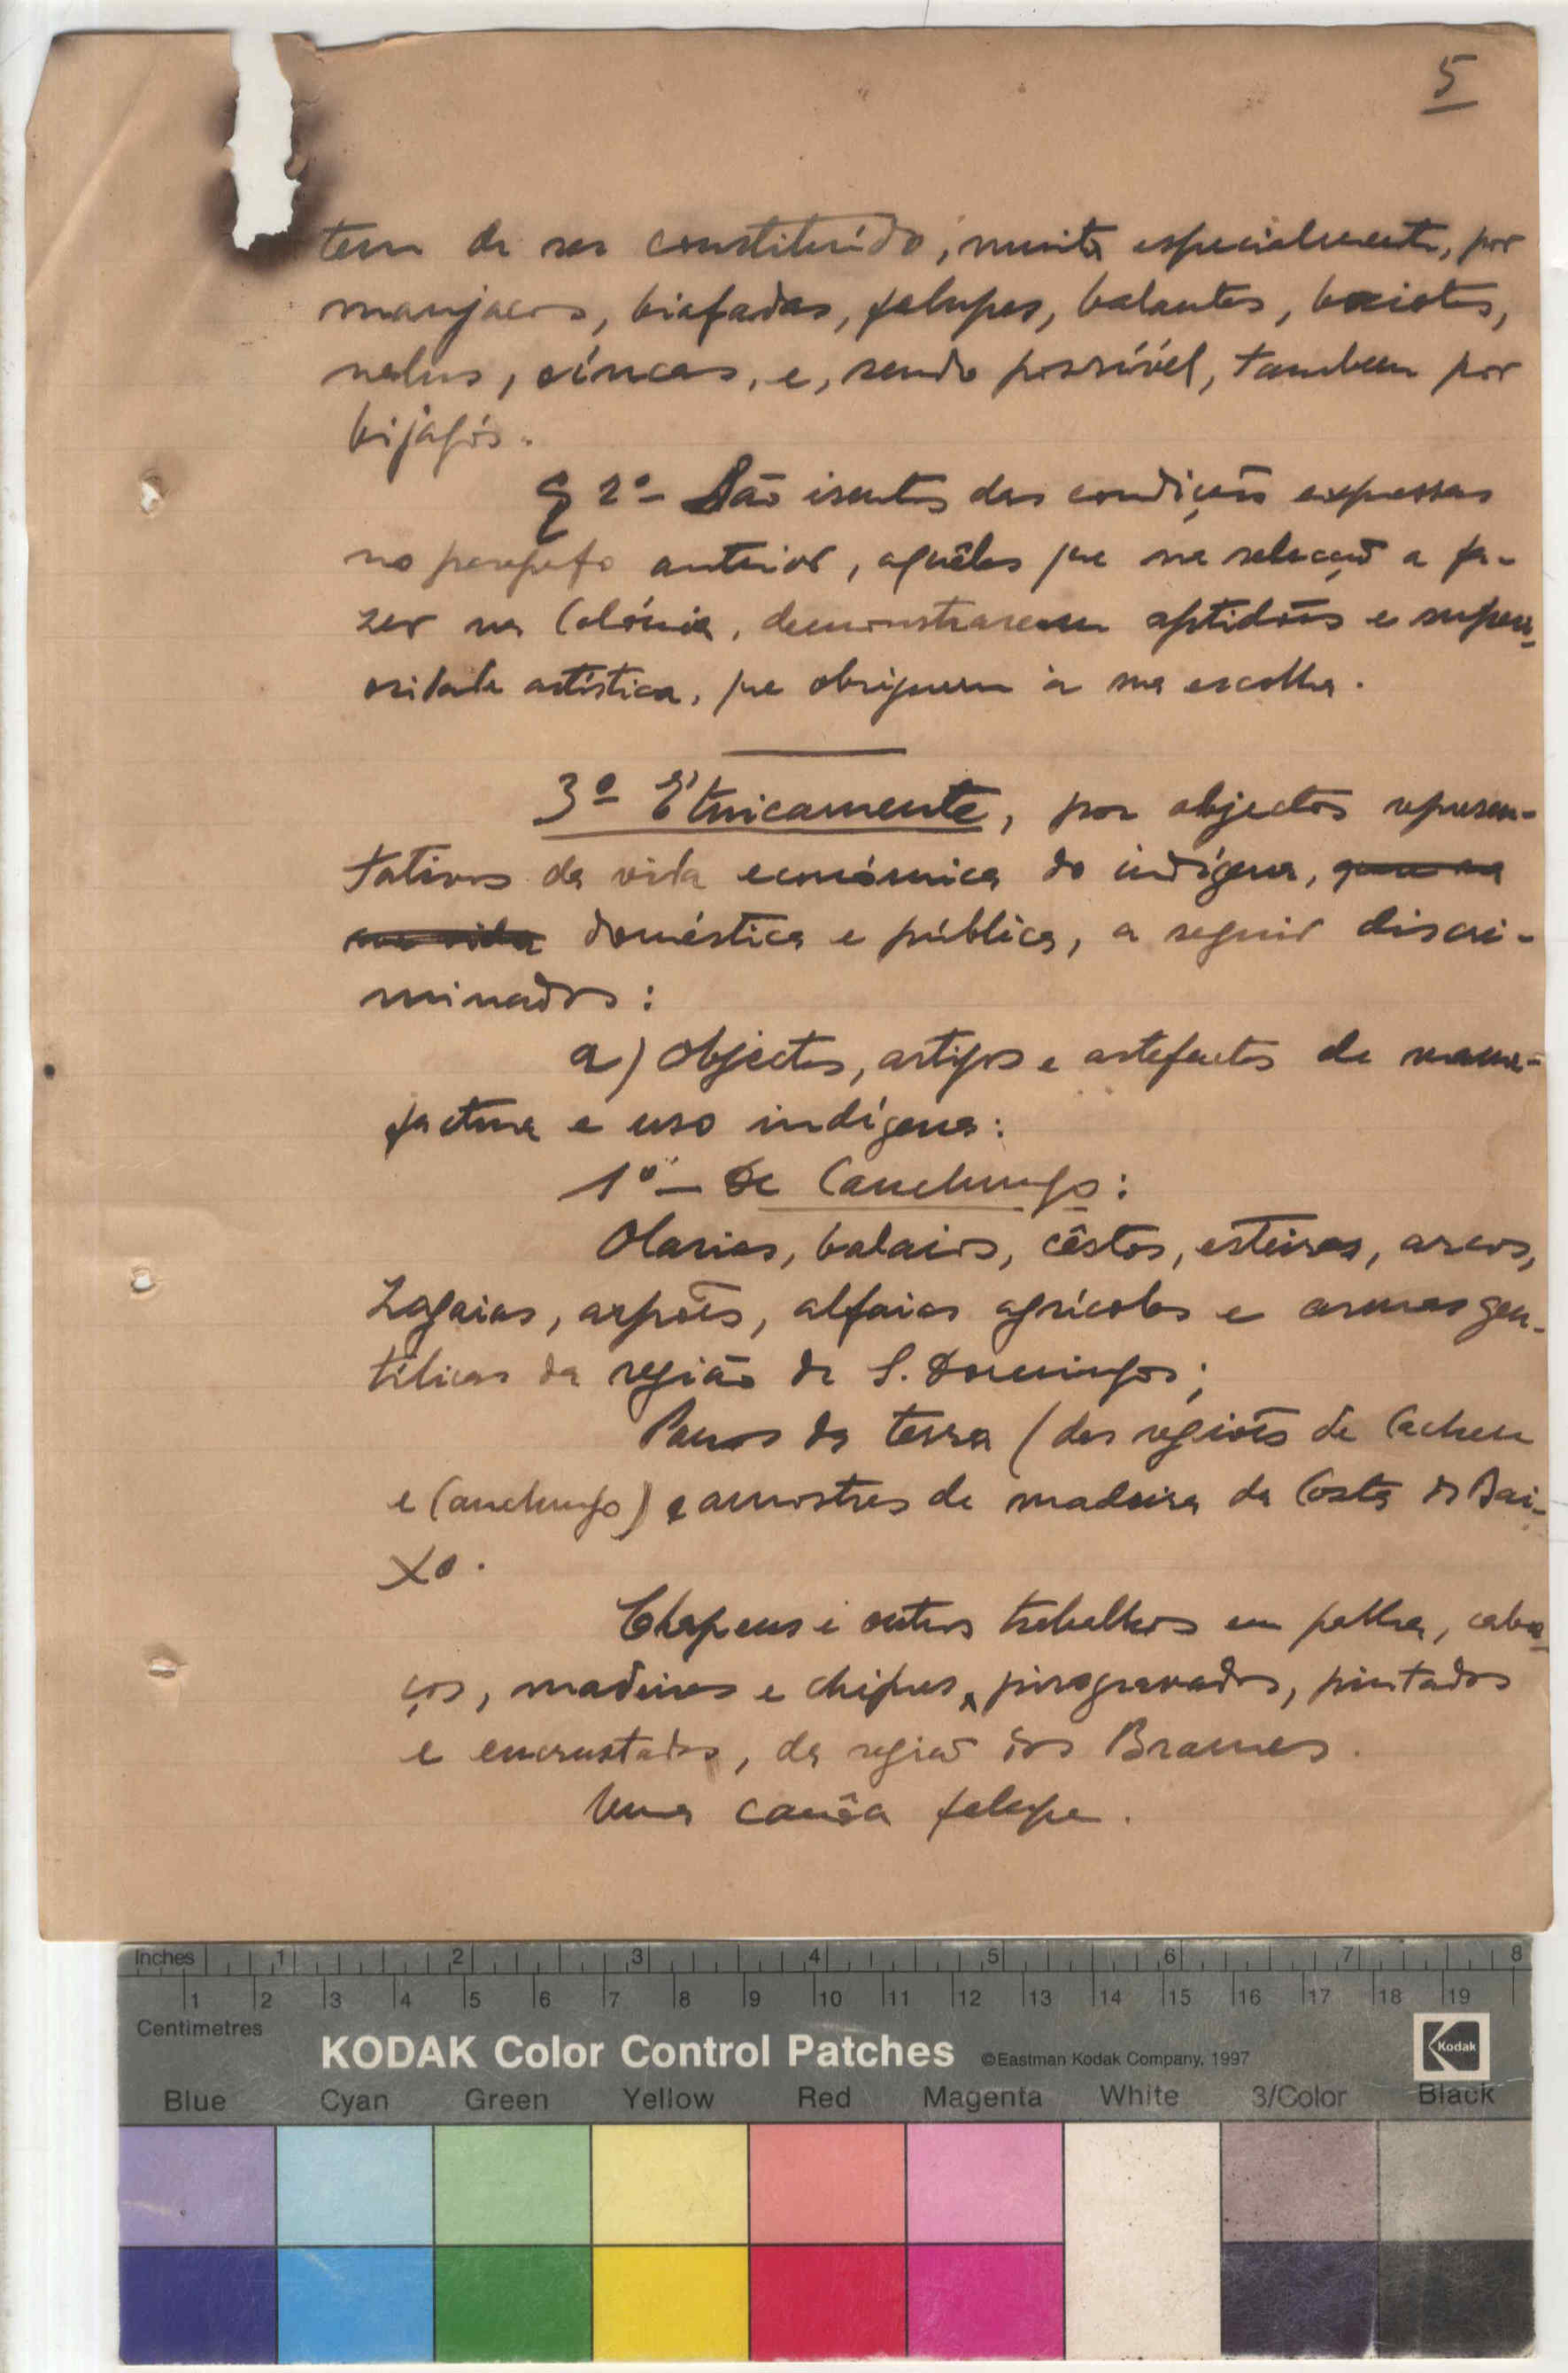 5
tem de ser constituído, muito especialmente, por
manjacos, biafadas, felupes, balantes, baiotes,
nalus, e, sendo possível, tambem por
bijagós.
§ 2º - São isentos das condições expressas
no paragrafo anterior, aquêles que na selecção a fa-
zer na Colónia, demonstrarem aptidões e superi-
oridade artística, que obriguem à sua escolha.
3º Étnicamente, por objectos represen-
tativos da vida económica do indígena,
doméstica e pública, a seguir discri-
minados:
a) Objectos, artigos e artefactos de manu-
factura e uso indígena:
1º - De Canchungo:
Olarias, balaios, cêstos, esteiras, arcos,
zagaias, arpões, alfaias agrícolas e armas gen-
tílicas da região de S. Domingos;
Panos da terra (das regiões de Cacheu
e Canchungo) e amostras de madeira da Costa de Bai-
xo.
Chapeus e outros trabalhos em palha, caba-
ços, madeiras e chifres, pirogravados, pintados
e encrustados, da região dos Brames.
Uma canôa felupe.
Inches 1 2 3 4 5 6 7 8
1 2 3 4 5 6 7 8 9 10 11 12 13 14 15 16 17 18 19
Centimetres
KODAK Color Control Patches ©Eastman Kodak Company, 1997 Kodak
Blue Cyan Green Yellow Red Magenta White 3/Color Black